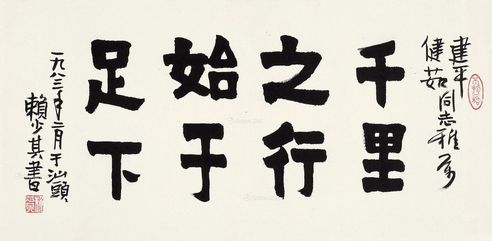 建平
健茹同志雅属
千里
之行
始于
足下
一九八三年二月于汕頭
賴少其書